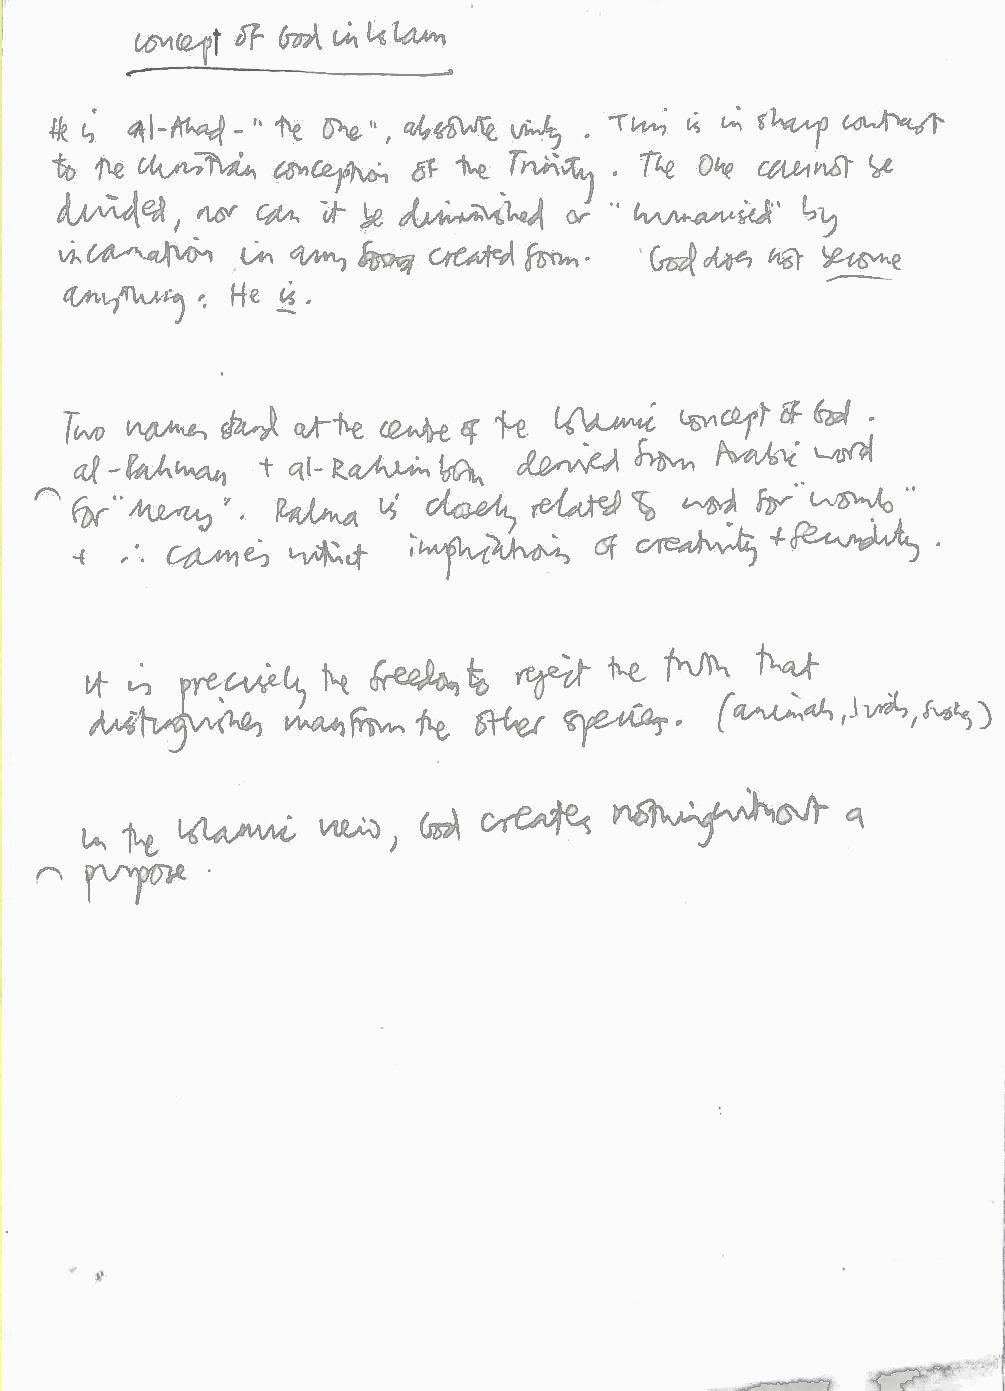 concept of God in Islam
He is Al-Ahad - "the One", absolute unity. This is in sharp contrast
to the Christian conception of the Trinity. The One cannot be
divided, nor can it be diminished or "humanised" by
incarnation in any created form. God does not become
anything: He is.
Two names stand at the centre of the Islamic concept of God.
al-Rahman + al-Rahim both derived from Arabic word
for "Mercy". Rahma is closely related to word for "womb"
+ ∴ carries with it implications of creativity + fecundity.
It is precisely the freedom to reject the truth that
distinguishes man from the other species. (animals, birds,
In the Islamic view, God creates nothing without a
purpose.